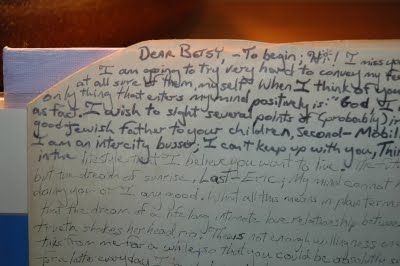 DEAR BETSY, - To begin; ! I miss you
I am going to try very hard to convey my fe
at all sure of them, myself. When I think of you
only thing that enters my mind, positively is: "God, I
as fact. I wish to sight several points of (probably) ir
good Jewish father to your children, Second-Mobil
I am an intercity busser; I can't keep up with you, Thi
in the lifestyle that I believe you want to live.
but ten dream of sunrise. Last-Eric; My mind cannot h
doing you or I any good. What all this means in plain term
that the dream of a life long intimate love relationship betwee
shakes her head no. There's not enough willingness on
this from me for a while, so that you could be absolutely s
for a letter everyday I